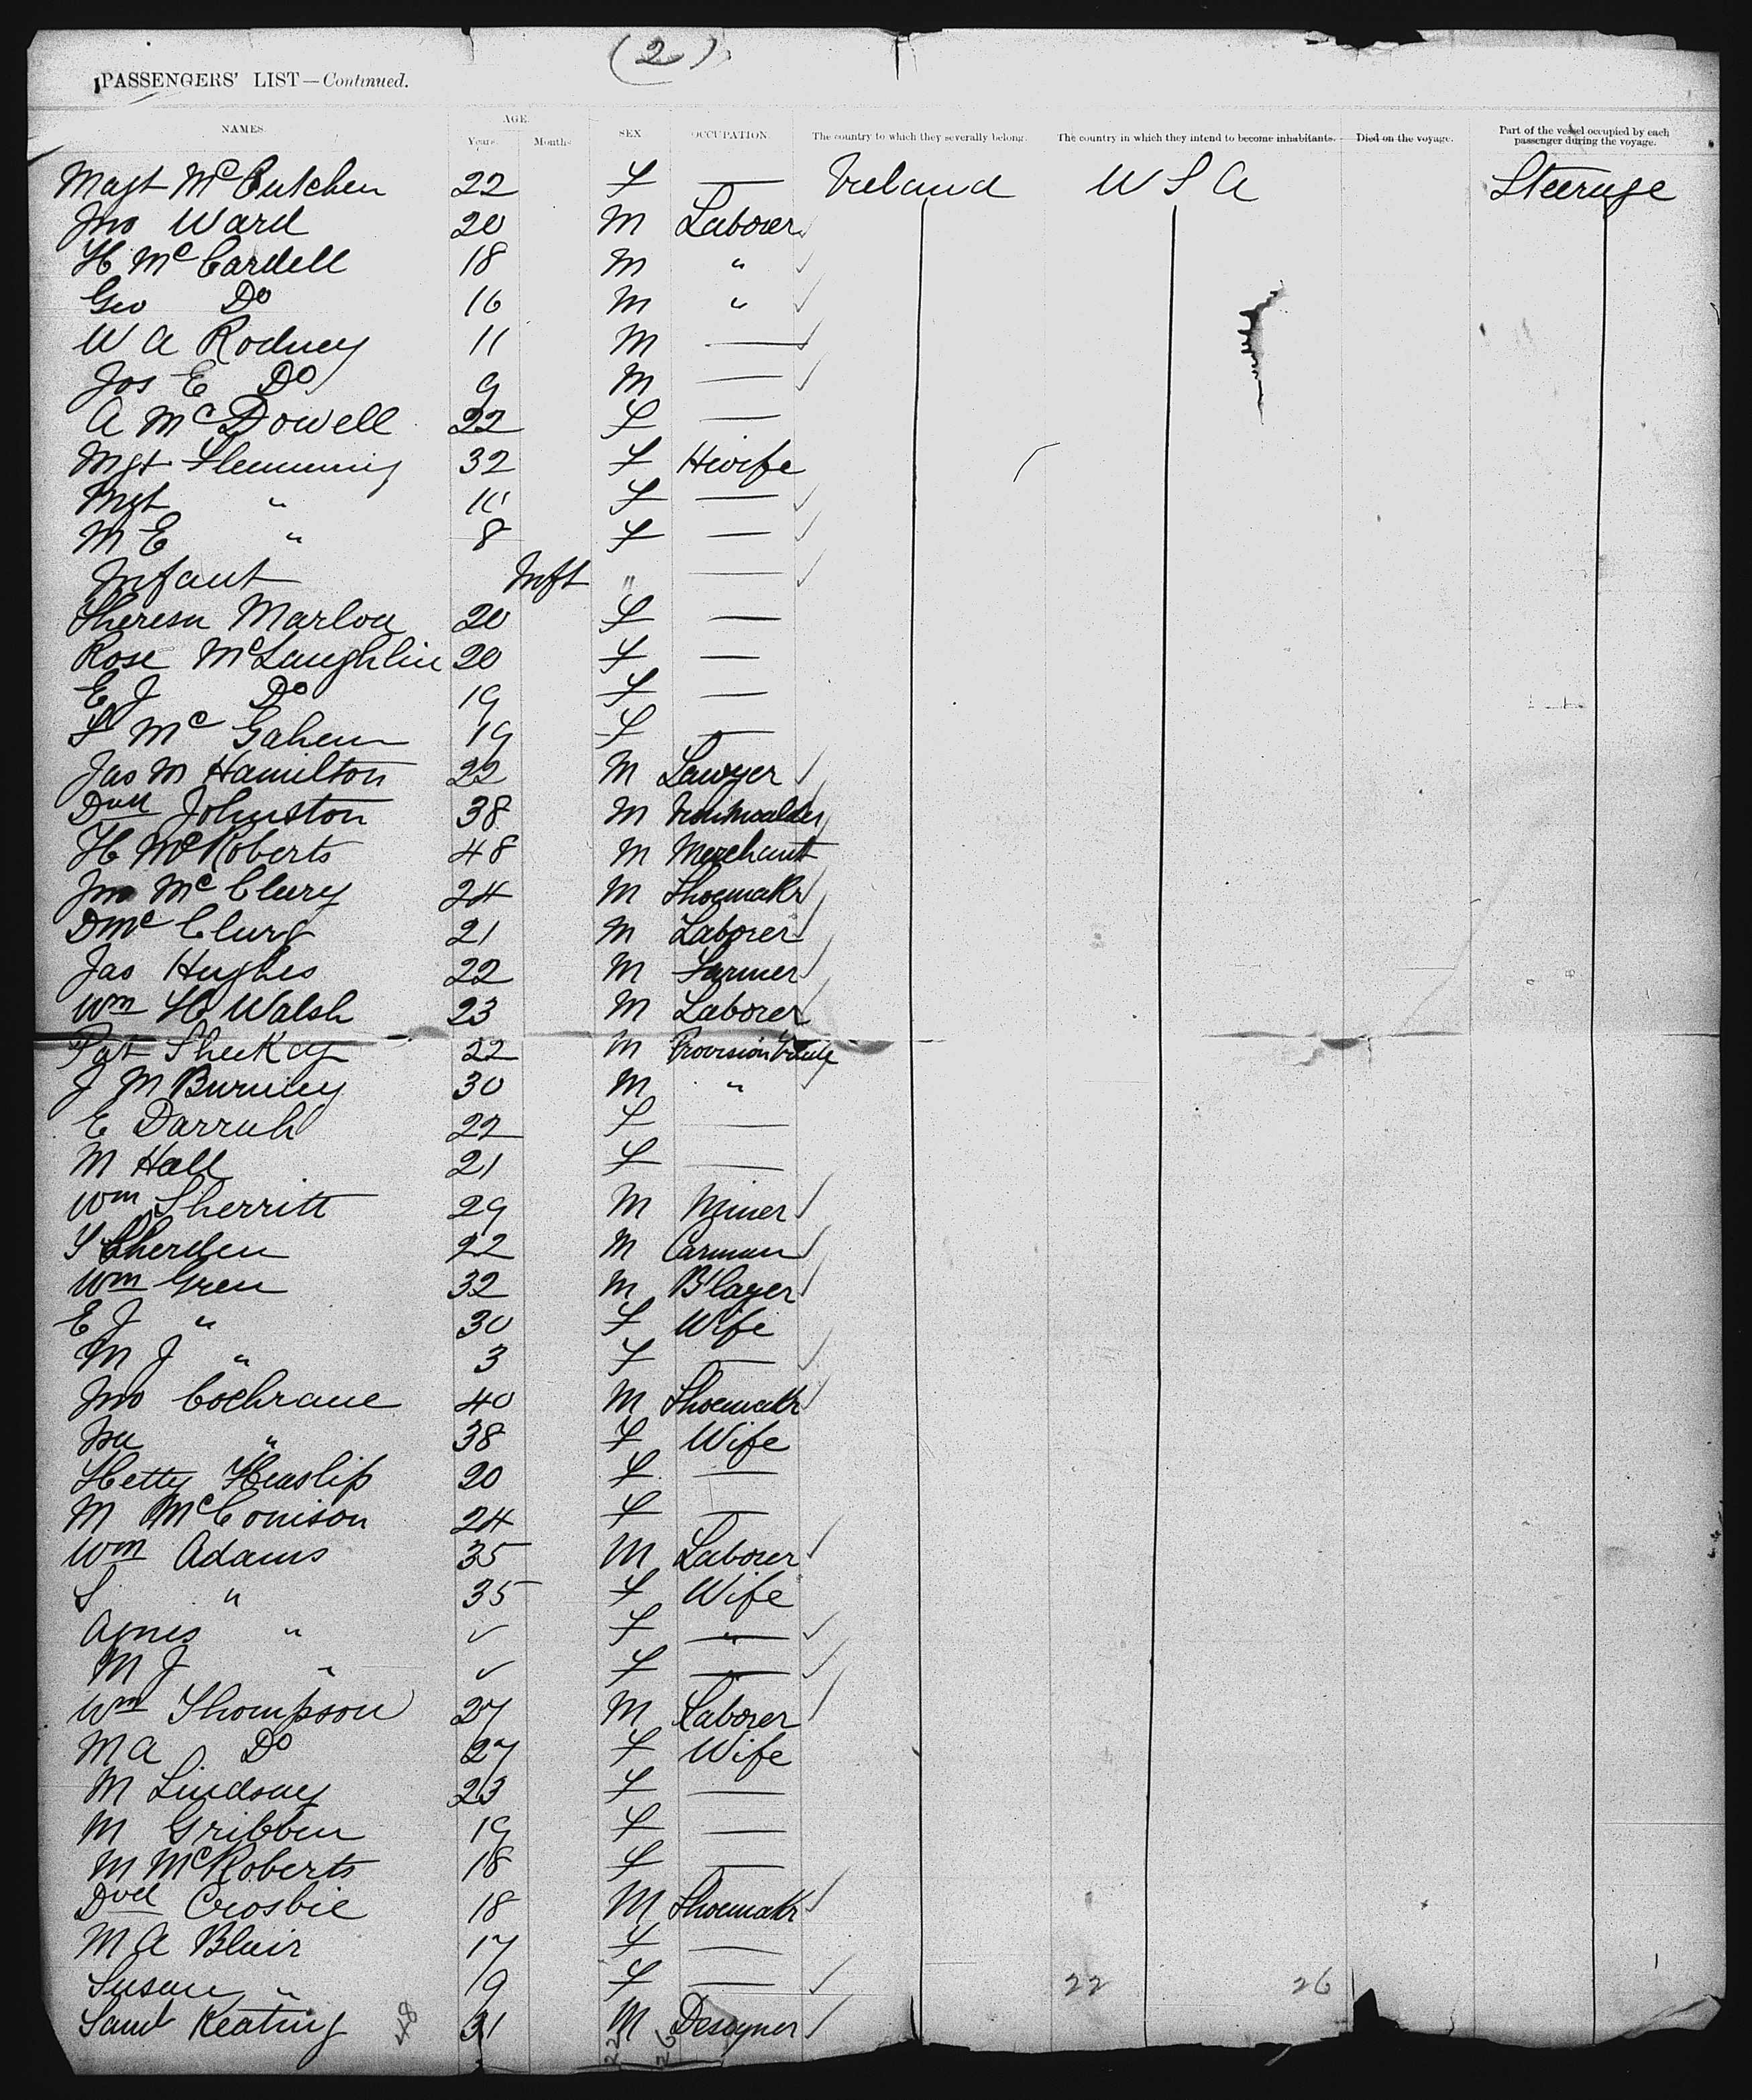 (2)
PASSENGERS' LIST—Continued.
NAMES. AGE. SEX OCCUPATION. The country to which they severally belong. The country in which they intend to become inhabitants. Died on the voyage. Part of the vessel occupied by each passenger during the voyage.
Years Months
Magt McCutchen 22 F — Ireland U S A Steerage
Jno Ward 20 M Laborer
H McCardell 18 M "
Geo Do 16 M "
W A Rodney 11 M —
Jos E Do 9 M —
A McDowell 22 F —
Mgt Flemming 32 F Hwife
Mgt " F —
M E " 8 F —
Infant Inft " —
Theresa Marlou 20 F —
Rose McLaughlin 20 F —
E J Do 19 F —
McGahem 19 F —
Jas M Hamilton 22 M Lawyer
Johnston 38 M
H McRoberts 48 M Merchant
Jno McClury 24 M Shoemakr
D McClurg 21 M Laborer
Jas Hughes 22 M Farmer
Wm H Walsh 23 M Laborer
Pat 22 M Provision
J M Burney 30 M "
E Darrah 22 F —
M Hall 21 F —
Wm Sherritt 29 M Miner
Sherden 22 M Carman
Wm Gren 32 M Blayer
E J " 30 F Wife
M J " 3 F —
Jno Cochrane 40 M Shoemakr
" 38 F Wife
Hetty Heaslip 20 F —
M McConison 24 F —
Wm Adams 35 M Laborer
S " 35 F Wife
Agnes " F "
M J " F —
Wm Thompson 27 M Laborer
M A Do 27 F Wife
M Lindsay 23 F —
M Gribben 19 F —
M McRoberts 18 F —
Dvd Crosbie 18 M Shoemakr
M A Blair 17 F —
Susan " 19 F — 22 26
Saml Keating 48 31 M Desgner
22 26